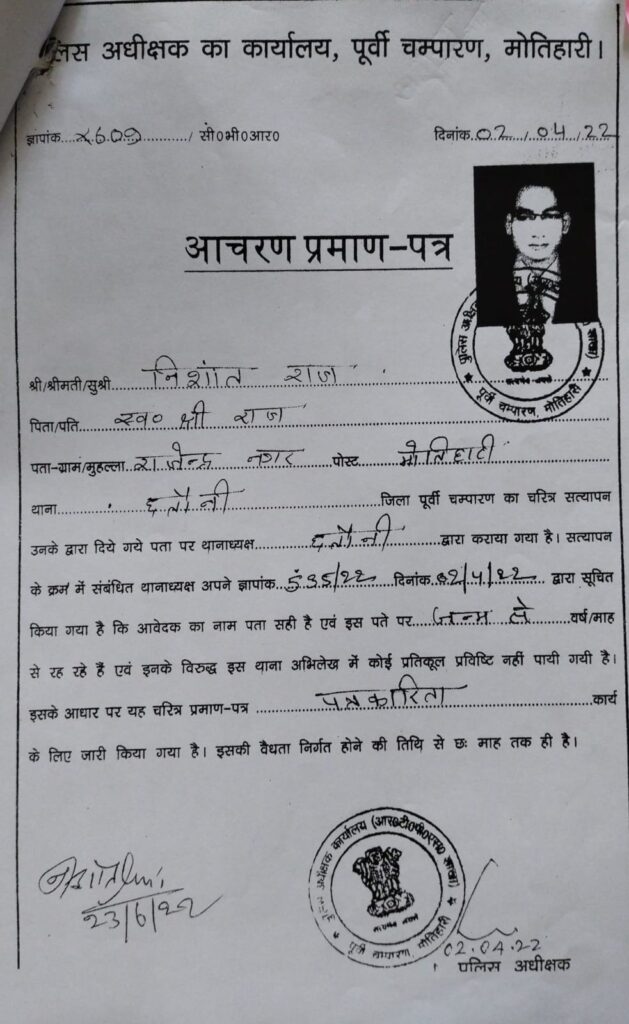 पुलिस अधीक्षक का कार्यालय, पूर्वी चम्पारण, मोतिहारी।
ज्ञापांक....2609............/ सी०भी०आर० दिनांक.02../04../22
आचरण प्रमाण-पत्र
श्री/श्रीमती/सुश्री....निशांत राज
पिता/पति....स्व० श्री राज
पता-ग्राम/मुहल्ला..राजेन्द्र नगर पोस्ट मोतिहारी
थाना छतौनी जिला पूर्वी चम्पारण का चरित्र सत्यापन
उनके द्वारा दिये गये पता पर थानाध्यक्ष छतौनी द्वारा कराया गया है। सत्यापन
के क्रम में संबंधित थानाध्यक्ष अपने ज्ञापांक 535/22 दिनांक.02/4/22 द्वारा सूचित
किया गया है कि आवेदक का नाम पता सही है एवं इस पते पर....जन्म से वर्ष/माह
से रह रहे हैं एवं इनके विरुद्ध इस थाना अभिलेख में कोई प्रतिकूल प्रविष्टि नहीं पायी गयी है।
इसके आधार पर यह चरित्र प्रमाण-पत्र पत्रकारिता कार्य
के लिए जारी किया गया है। इसकी वैधता निर्गत होने की तिथि से छः माह तक ही है।
पूर्वी चम्पारण, मोतिहारी
पुलिस अधीक्षक कार्यालय (आर०टी०पी०एस० शाखा)
सत्यमेव जयते
पूर्वी चम्पारण, मोतिहारी
23/6/22
02.04.22
पुलिस अधीक्षक